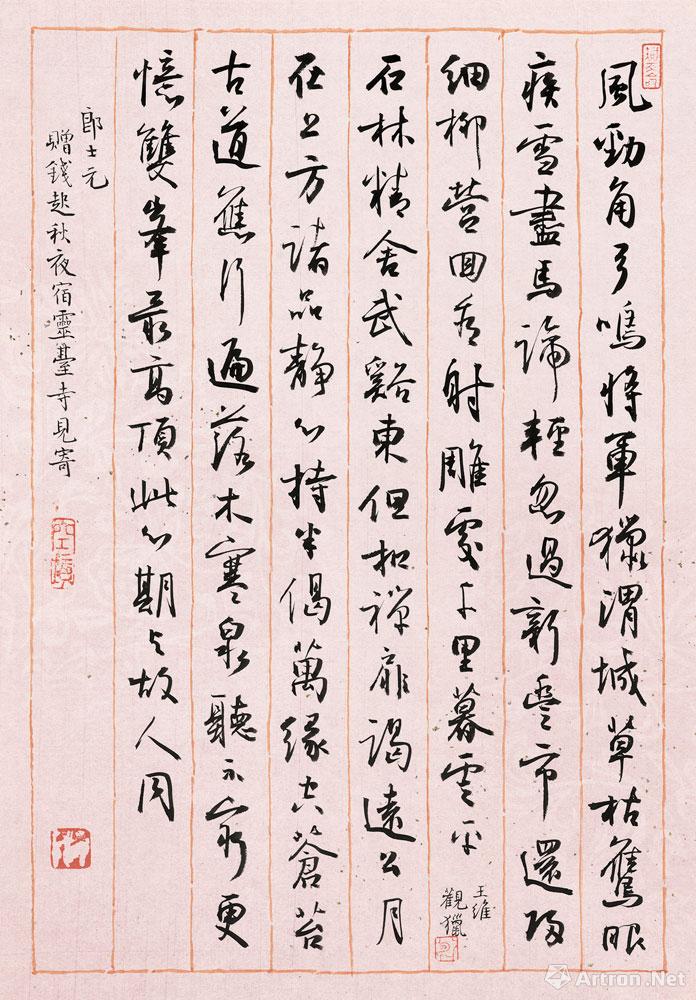 風勁角弓鳴將軍獵渭城草枯鷹眼
疾雪盡馬蹄輕忽過新豐市還歸
細柳營回看射雕處千里暮雲平
王維
觀獵
石林精舍武谿東但扣禪扉謁遠公月
在上方諸品靜心持半偈萬緣空蒼苔
古道應行遍落木寒泉聽不窮更
憶雙峯最高頂此心期與故人同
郎士元
贈錢起秋夜宿靈臺寺見寄
Artron.Net